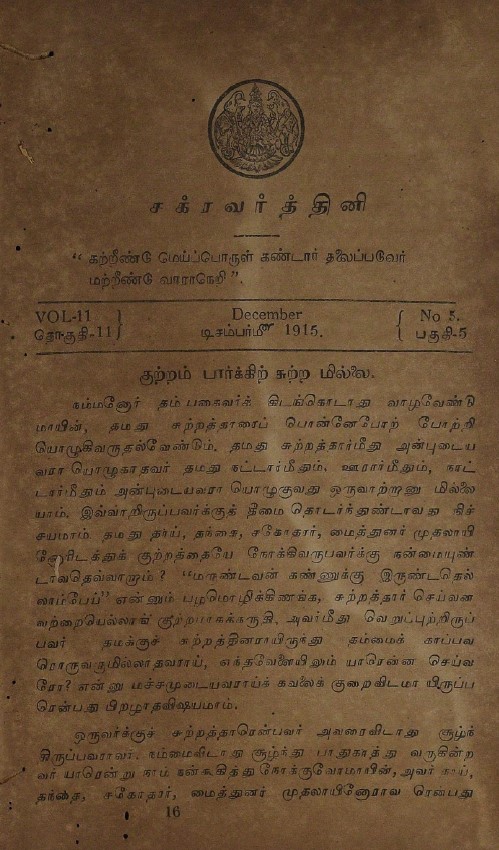 சக்ரவர்த்தினி
“ கற்றீண்டு மெய்ப்பொருள் கண்டார் தலைப்படுவேர்
மற்றீண்டு வாராநெறி”.
VOL-11 } December { No 5.
தொகுதி-11 } டிசம்பர்மீ 1915. { பகுதி-5
குற்றம் பார்க்கிற் சுற்ற மில்லை.
நம்மனோர் தம் பகைவர்க் கிடங்கொடாது வாழவேண்டு
மாயின், தமது சுற்றத்தாரைப் பொன்னேபோற் போற்றி
யொழுகிவருதல்வேண்டும். தமது சுற்றத்தார்மீது அன்புடைய
வரா யொழுகாதவர் தமது நட்டார்மீதும், ஊரார்மீதும், நாட்
டார்மீதும் அன்புடையவரா யொழுகுவது ஒருவாற்றானு மில்லை
யாம். இவ்வாறிருப்பவர்க்குத் தீமை தொடர்ந்துண்டாவது நிச்
சயமாம். தமது தாய், தந்தை, சகோதரர், மைத்துனர் முதலாயி
னோரிடத்துக் குற்றத்தையே நோக்கிவருபவர்க்கு நன்மையுண்
டாவதெவ்வாறும்? “மருண்டவன் கண்ணுக்கு இருண்டதெல்
லாம்பேய்” என்னும் பழமொழிக்கிணங்க, சுற்றத்தார் செய்வன
வற்றையெல்லாங் குற்றமாகக்கருதி, அவர்மீது வெறுப்புற்றிருப்
பவர் தமக்குச் சுற்றத்தினராயிருந்து தம்மைக் காப்பவ
ரொருவருமில்லாதவராய், எந்தவேளையிலும் யாரென்ன செய்வ
ரோ? என்னு மச்சமுடையவராய்க் கவலைக் குறைவிடமா யிருப்ப
ரென்பது பிறழாதவிஷயமாம்.
ஒருவர்க்குச் சுற்றத்தாரென்பவர் அவரைவிடாது சூழ்ந்
திருப்பவராவர். நம்மைவிடாது சூழ்ந்து பாதுகாத்து வருகின்ற
வர் யாரென்று நாம் நன்கூகித்து நோக்குவோமாயின், அவர் தாய்,
தந்தை, சகோதரர், மைத்துனர் முதலாயினோராவ ரென்பது
16